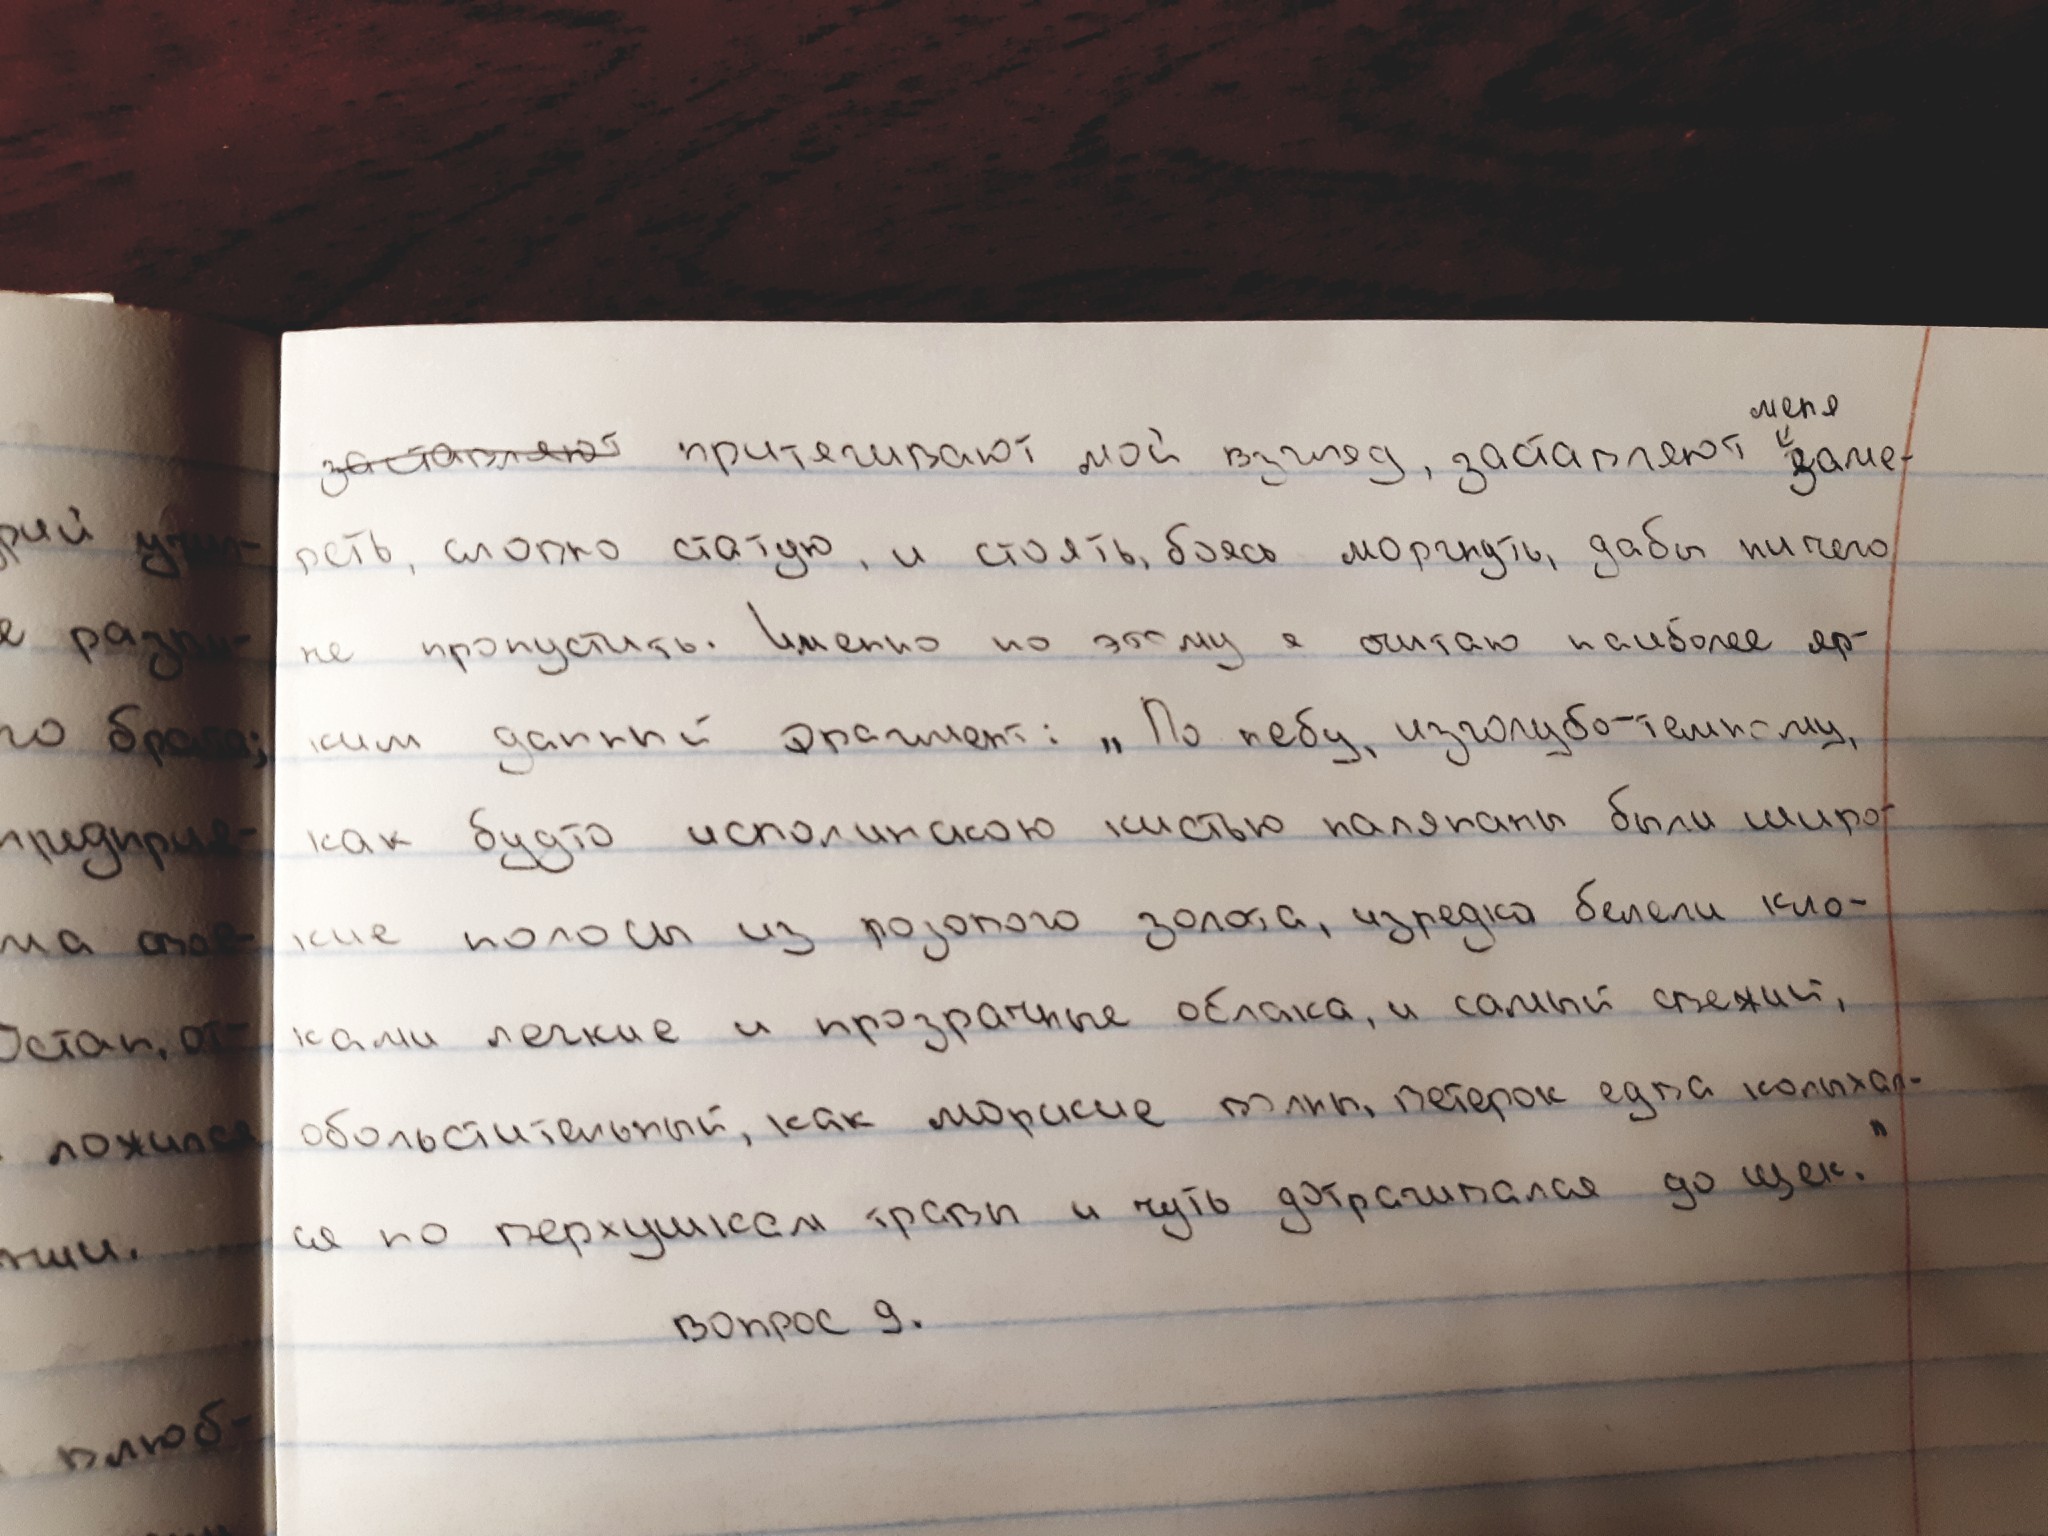 меня
заставляют притягивают мой взгляд, заставляют заме-
реть, словно статую, и стоять, боясь моргнуть, дабы ничего
не пропустить. Именно по этому я считаю наиболее яр-
ким данный фрагмент: „По небу, изголубо-темному,
как будто исполинскою кистью наляпаны были широ-
кие полосы из розового золота, изредка белели кло-
ками легкие и прозрачные облака, и самый свежий,
обольстительный, как морские волны, ветерок едва колыхал-
ся по верхушкам травы и чуть дотрагивался до щек."
вопрос 9.
рий
е разни-
го брата;
предприя-
ма
Остап, от-
ложился
влюб-